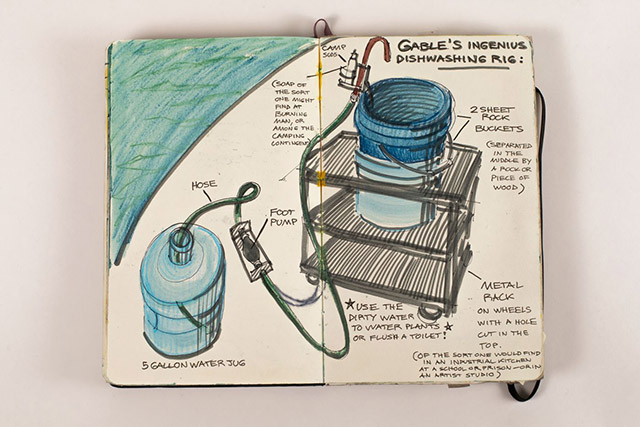 CAMP
SUDS
(SOAP OF
THE SORT
ONE MIGHT
FIND AT
BURNING
MAN, OR
AMONG THE
CAMPING
CONTINGENT)
HOSE
FOOT
PUMP
5 GALLON WATER JUG
GABLE'S INGENIUS
DISHWASHING RIG:
2 SHEET
ROCK
BUCKETS
(SEPARATED
IN THE
MIDDLE BY
A ROCK OR
PIECE OF
WOOD)
★USE THE
DIRTY WATER
TO WATER PLANTS ★
OR FLUSH A TOILET!
METAL
RACK
ON WHEELS
WITH A HOLE
CUT IN THE
TOP.
(OF THE SORT ONE WOULD FIND
IN AN INDUSTRIAL KITCHEN
AT A SCHOOL OR PRISON - OR IN
AN ARTIST STUDIO)